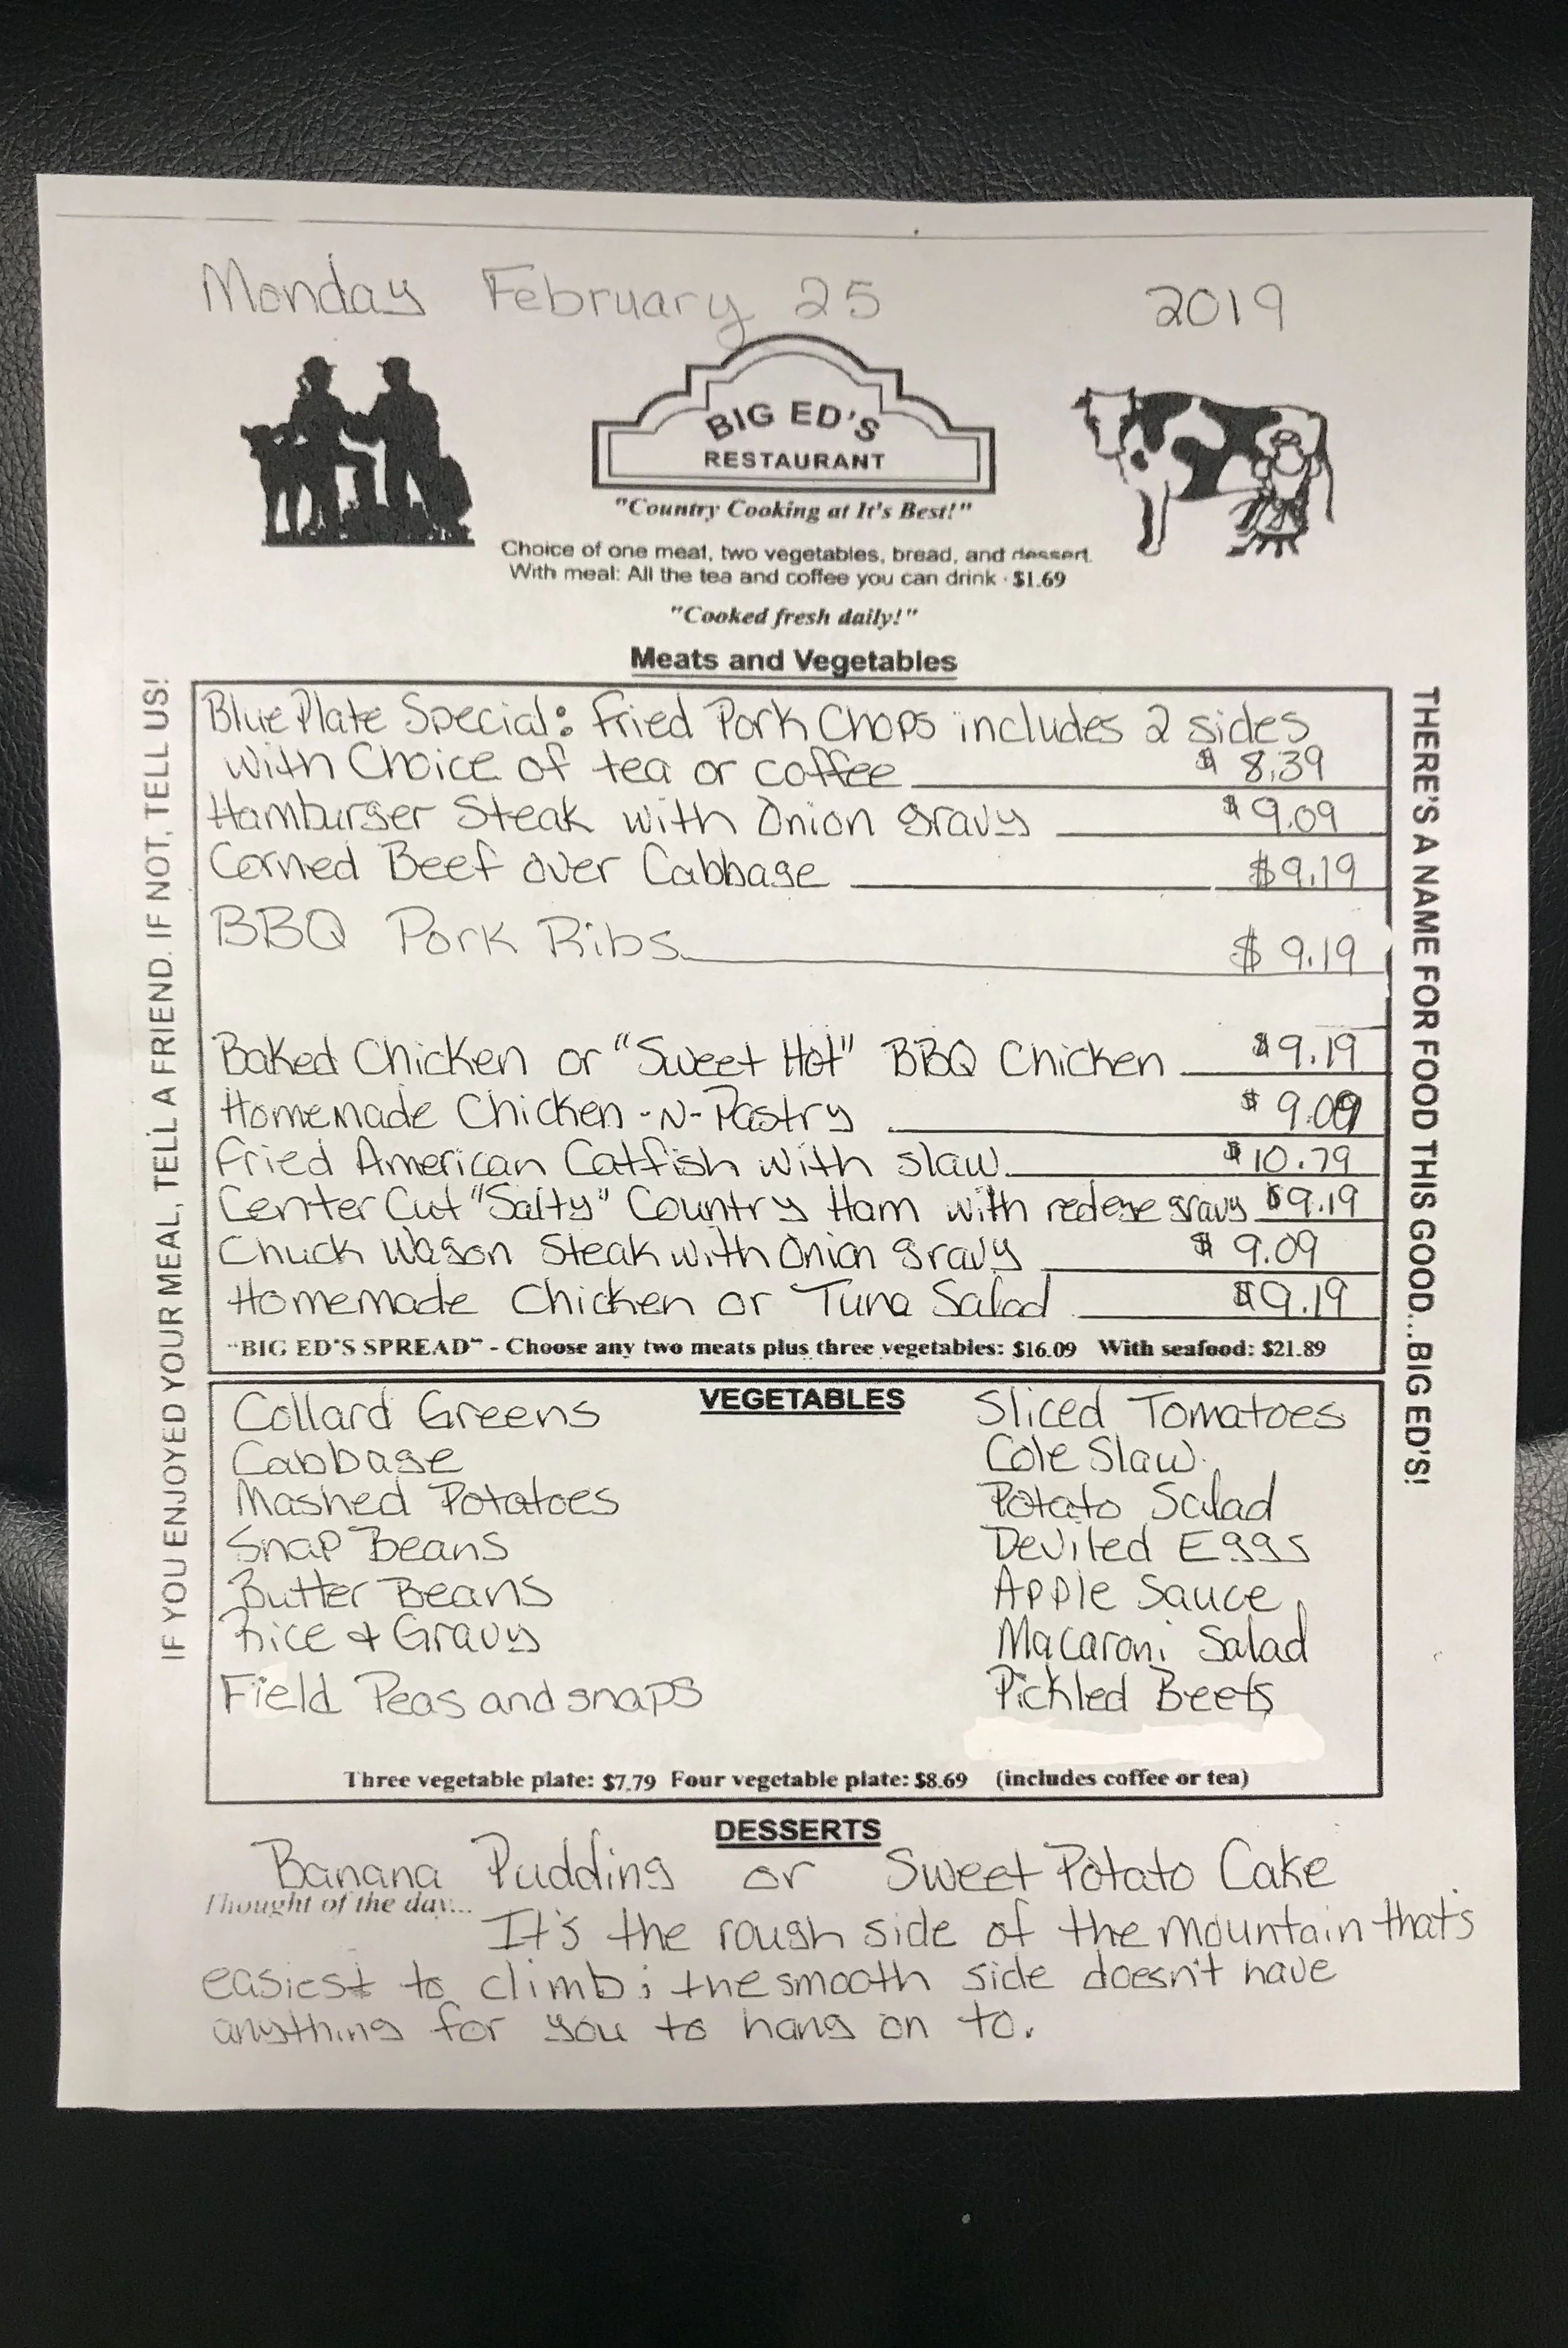 Monday February 25 2019
BIG ED'S
RESTAURANT
"Country Cooking at It's Best!"
Choice of one meat, two vegetables, bread, and dessert.
With meal: All the tea and coffee you can drink · $1.69
"Cooked fresh daily!"
Meats and Vegetables
Blue Plate Special: Fried Pork Chops includes 2 sides
with Choice of tea or coffee $ 8.39
Hamburger Steak with Onion gravy $9.09
Corned Beef over Cabbage $9.19
BBQ Pork Ribs $ 9.19
Baked Chicken or "Sweet Hot" BBQ Chicken $9.19
Homemade Chicken-N-Pastry $ 9.09
Fried American Catfish with slaw $10.79
Center Cut "Salty" Country Ham with redeye gravy $9.19
Chuck Wagon Steak with Onion gravy $ 9.09
Homemade Chicken or Tuna Salad $9.19
"BIG ED'S SPREAD" - Choose any two meats plus three vegetables: $16.09 With seafood: $21.89
VEGETABLES
Collard Greens
Cabbage
Mashed Potatoes
Snap Beans
Butter Beans
Rice & Gravy
Field Peas and snaps
Sliced Tomatoes
Cole Slaw
Potato Salad
Deviled Eggs
Apple Sauce
Macaroni Salad
Pickled Beets
Three vegetable plate: $7.79 Four vegetable plate: $8.69 (includes coffee or tea)
DESSERTS
Banana Pudding or Sweet Potato Cake
Thought of the day...
It's the rough side of the mountain that's
easiest to climb; the smooth side doesn't have
anything for you to hang on to.
IF YOU ENJOYED YOUR MEAL, TELL A FRIEND. IF NOT, TELL US!
THERE'S A NAME FOR FOOD THIS GOOD...BIG ED'S!